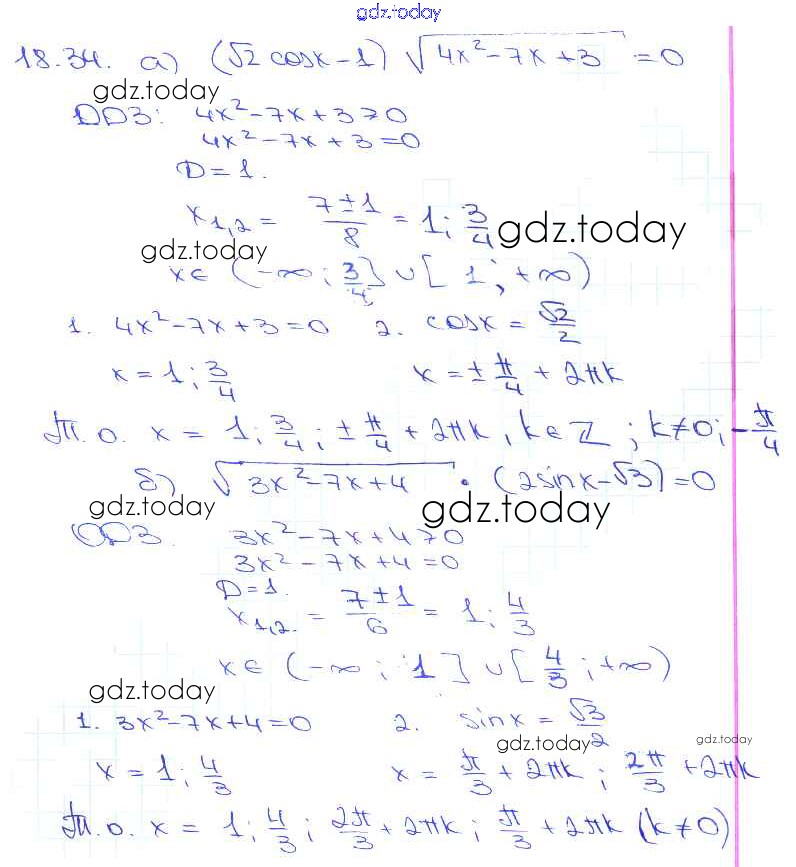 gdz.today
18.34. а) (√2 cosx – 1) √4x² – 7x + 3 = 0
gdz.today
ОДЗ: 4x² – 7x + 3 ≥ 0
4x² – 7x + 3 = 0
D = 1.
x₁,₂ = (7 ± 1)/8 = 1; 3/4
gdz.today
gdz.today
x ∈ (–∞; 3/4] ∪ [1; +∞)
1. 4x² – 7x + 3 = 0 2. cosx = √2/2
x = 1; 3/4 x = ± π/4 + 2πk
Т. о. x = 1; 3/4; ± π/4 + 2πk, k ∈ ℤ; k ≠ 0; – π/4
б) √3x² – 7x + 4 · (2sinx – √3) = 0
gdz.today
gdz.today
ОДЗ. 3x² – 7x + 4 ≥ 0
3x² – 7x + 4 = 0
D = 1.
x₁,₂. = (7 ± 1)/6 = 1; 4/3
x ∈ (–∞; 1] ∪ [4/3; +∞)
gdz.today
1. 3x² – 7x + 4 = 0 2. sinx = √3/2
gdz.today
gdz.today
x = 1; 4/3 x = π/3 + 2πk; 2π/3 + 2πk
Т. о. x = 1; 4/3; 2π/3 + 2πk; π/3 + 2πk (k ≠ 0)